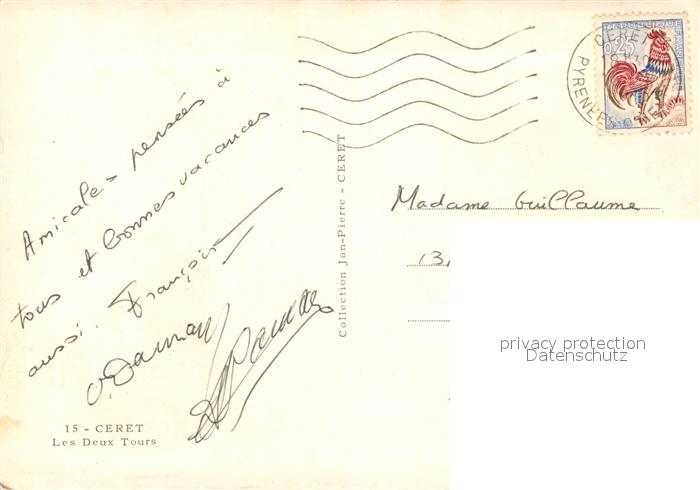 Amicales pensées à
tous et bonnes vacances
aussi. François
15 - CERET
Les Deux Tours
Collection Jan-Pierre - CERET
0,25
CERET
PYRENEES
Madame Guillaume
13,
privacy protection
Datenschutz